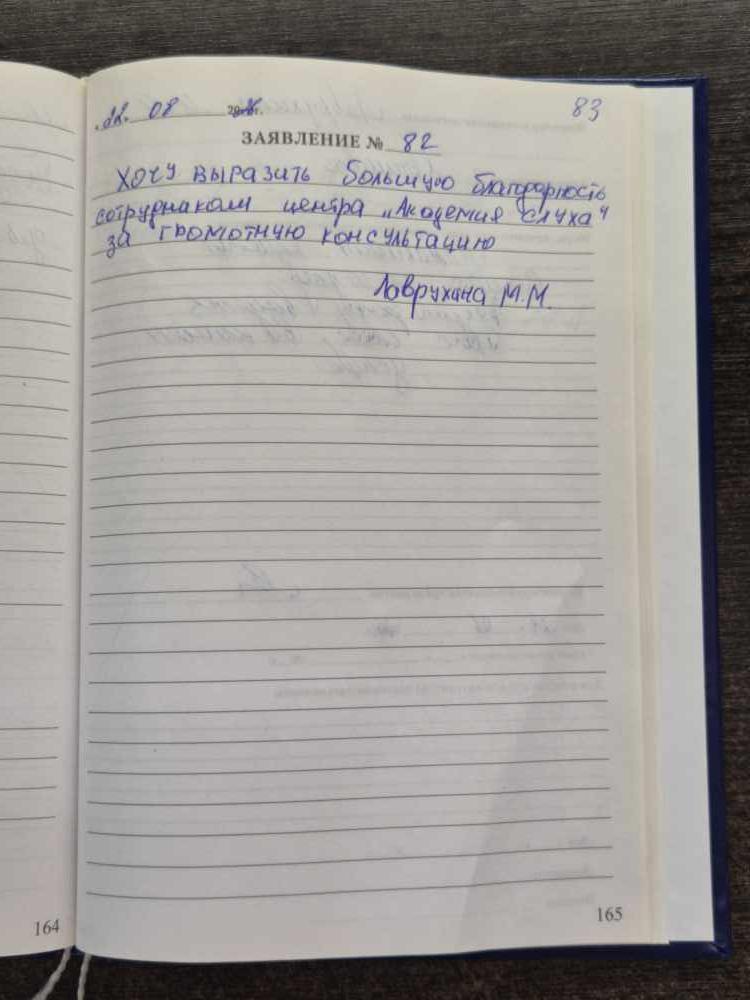 22. 08 20 г. 83
ЗАЯВЛЕНИЕ № 82
Хочу выразить большую благодарность
сотрудникам центра „Академия слуха"
за громотную консультацию
Лаврухина М.М.
164
165